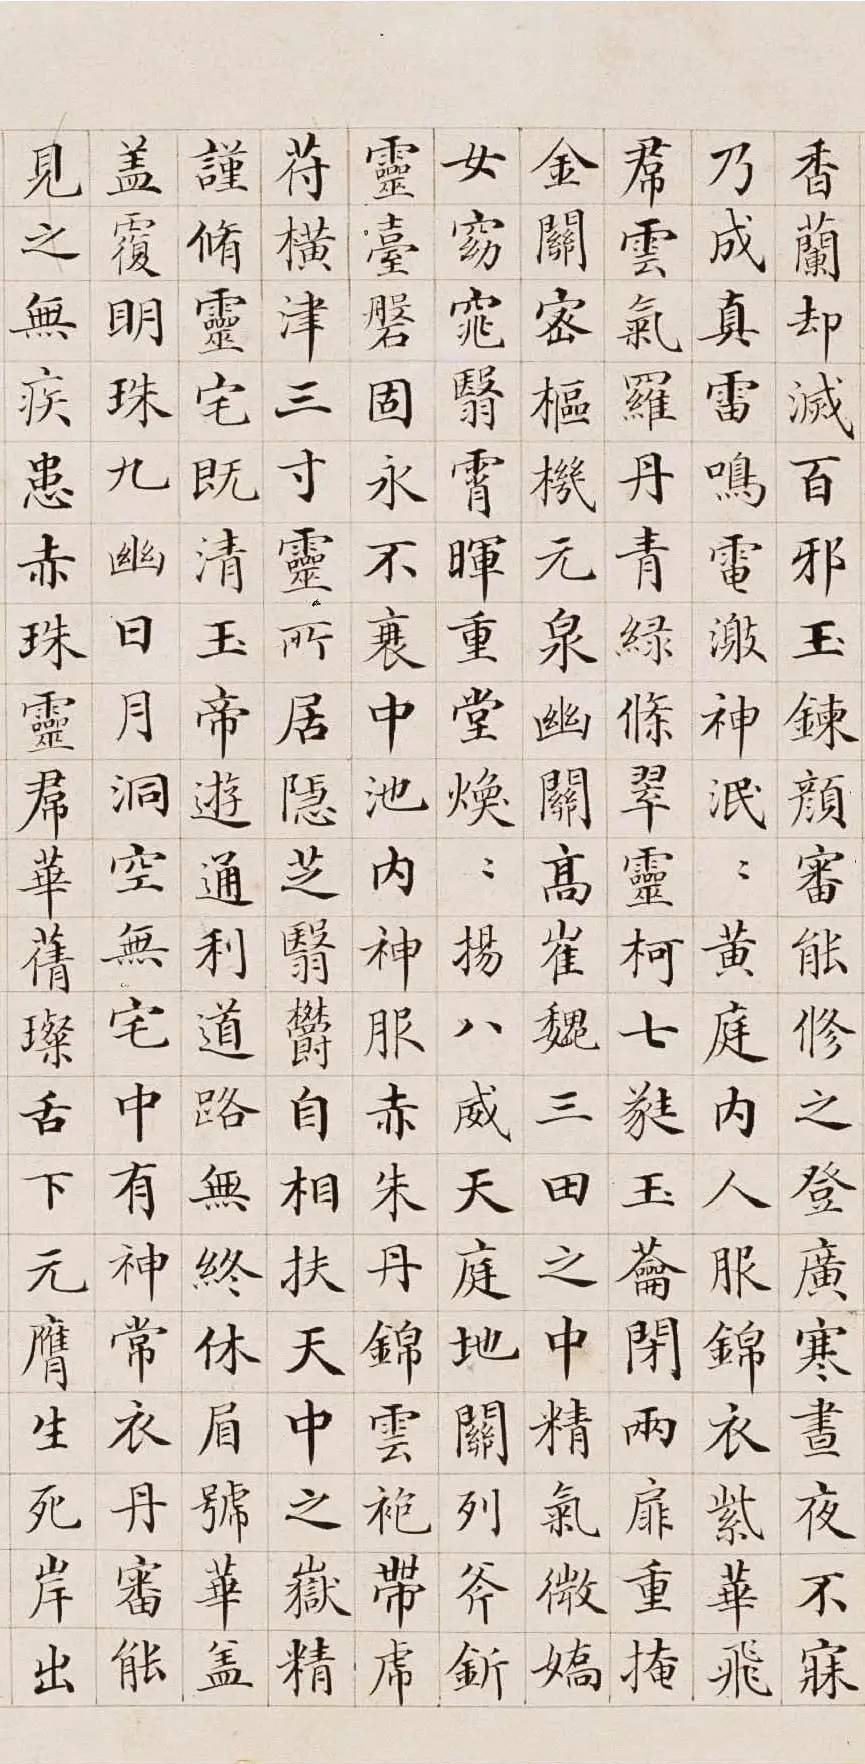 香蘭却滅百邪玉鍊顔審能修之登廣寒晝夜不寐
乃成真雷鳴電激神泯〻黄庭内人服錦衣紫華飛
帬雲氣羅丹青緑條翠靈柯七蕤玉蘥閉兩扉重掩
金關密樞機元泉幽關高崔魏三田之中精氣微嬌
女窈窕翳霄暉重堂煥〻揚八威天庭地關列斧釿
靈臺磐固永不衰中池内神服赤朱丹錦雲袍帶虎
苻橫津三寸靈所居隱芝翳欝自相扶天中之嶽精
謹脩靈宅既清玉帝遊通利道路無終休眉號華盖
盖覆明珠九幽日月洞空無宅中有神常衣丹審能
見之無疾患赤珠靈帬華蒨璨舌下元膺生死岸出